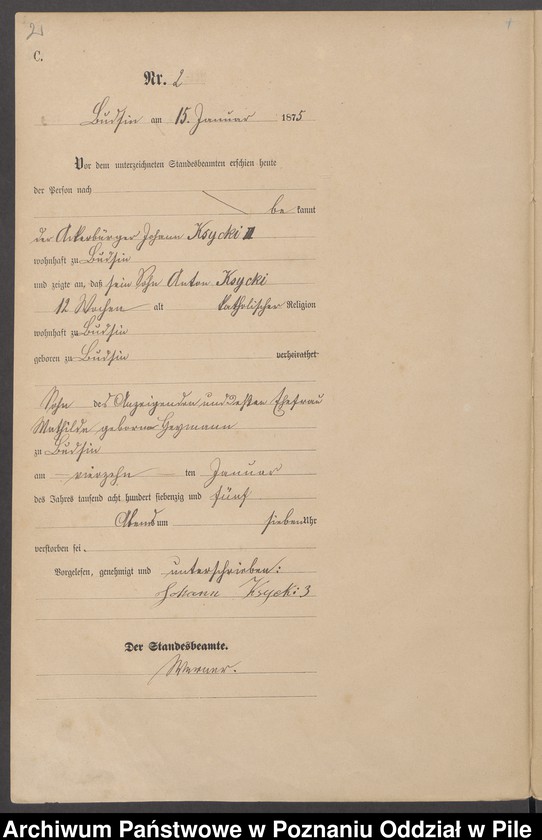 2
C.
Nr. 2
Budsin am 15. Januar 1875
Vor dem unterzeichneten Standesbeamten erschien heute
der Person nach
be kannt
der Ackerbürger Johann Ksycki III
wohnhaft zu Budsin
und zeigte an, daß sein Sohn Anton Ksycki
12 Wochen alt katholischer Religion
wohnhaft zu Budsin
geboren zu Budsin verheirathet
Sohn des Anzeigenden und dessen Ehefrau
Mathilde geborne Heymann
zu Budsin
am vierzehn ten Januar
des Jahres tausend acht hundert siebenzig und fünf
Abends um sieben Uhr
verstorben sei.
Vorgelesen, genehmigt und unterschrieben:
Johann Ksycki 3
Der Standesbeamte.
Werner.
Archiwum Państwowe w Poznaniu Oddział w Pile